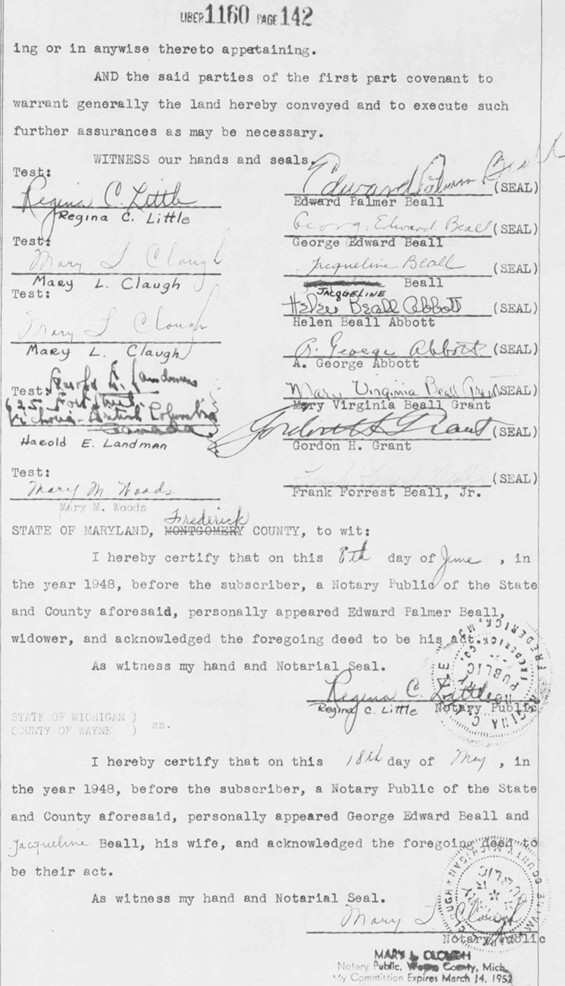 LIBER 1160 PAGE 142
ing or in anywise thereto appetaining.
AND the said parties of the first part covenant to
warrant generally the land hereby conveyed and to execute such
further assurances as may be necessary.
WITNESS our hands and seals.
Test:
Regina C. Little
Regina C. Little
Edward Palmer Beall (SEAL)
Edward Palmer Beall
Test:
Mary L Clough
Mary L. Claugh
George Edward Beall (SEAL)
George Edward Beall
Jacqueline Beall (SEAL)
JACQUELINE Beall
Test:
Mary L Clough
Mary L. Claugh
Helen Beall Abbott (SEAL)
Helen Beall Abbott
A. George Abbott (SEAL)
A. George Abbott
Test: Harold E. Landman
625 Fort Street
Victoria British Columbia
Canada
Harold E. Landman
Mary Virginia Beall Grant (SEAL)
Mary Virginia Beall Grant
Gordon H. Grant (SEAL)
Gordon H. Grant
Test:
Mary M. Woods
Mary M. Woods
(SEAL)
Frank Forrest Beall, Jr.
Frederick
STATE OF MARYLAND, MONTGOMERY COUNTY, to wit:
I hereby certify that on this 8th day of June, in
the year 1948, before the subscriber, a Notary Public of the State
and County aforesaid, personally appeared Edward Palmer Beall,
widower, and acknowledged the foregoing deed to be his act.
As witness my hand and Notarial Seal.
Regina C. Little
Regina C. Little Notary Public
STATE OF MICHIGAN )
COUNTY OF WAYNE ) ss.
I hereby certify that on this 18th day of May, in
the year 1948, before the subscriber, a Notary Public of the State
and County aforesaid, personally appeared George Edward Beall and
Jacqueline Beall, his wife, and acknowledged the foregoing deed to
be their act.
As witness my hand and Notarial Seal.
Mary L Clough
Notary Public
MARY L CLOUGH
Notary Public, Wayne County, Mich.
My Commission Expires March 14, 1952